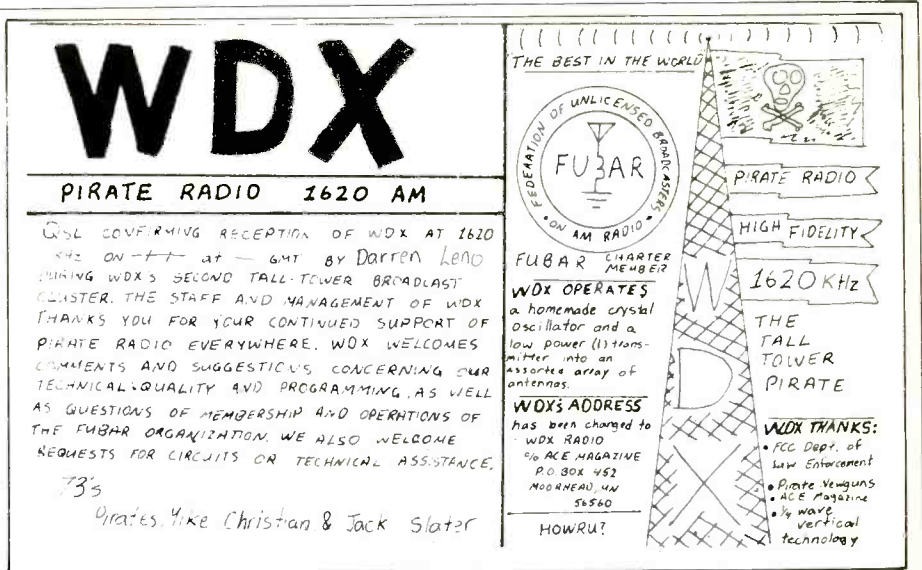 WDX
PIRATE RADIO 1620 AM
QSL CONFIRMING RECEPTION OF WDX AT 1620
KHz ON -/-/- at — GMT BY Darren Leno
DURING WDX'S SECOND TALL-TOWER BROADCAST
CLUSTER. THE STAFF AND MANAGEMENT OF WDX
THANKS YOU FOR YOUR CONTINUED SUPPORT OF
PIRATE RADIO EVERYWHERE. WDX WELCOMES
COMMENTS AND SUGGESTIONS CONCERNING OUR
TECHNICAL QUALITY AND PROGRAMMING, AS WELL
AS QUESTIONS OF MEMBERSHIP AND OPERATIONS OF
THE FUBAR ORGANIZATION. WE ALSO WELCOME
REQUESTS FOR CIRCUITS OR TECHNICAL ASSISTANCE.
73's
Pirates, Mike Christian & Jack Slater
THE BEST IN THE WORLD
FEDERATION OF UNLICENSED BROADCASTERS
• ON AM RADIO •
FUBAR
FUBAR CHARTER
MEMBER
WDX OPERATES
a homemade crystal
oscillator and a
low power (!) trans-
mitter into an
assorted array of
antennas.
WDX's ADDRESS
has been changed to
WDX RADIO
c/o ACE MAGAZINE
P.O. BOX 452
MOORHEAD, MN
56560
HOWRU?
WDX
PIRATE RADIO
HIGH FIDELITY
1620 KHz
THE
TALL
TOWER
PIRATE
WDX THANKS:
• FCC Dept. of
Law Enforcement
• Pirate Newguns
• ACE Magazine
• 1/4 wave
vertical
technology